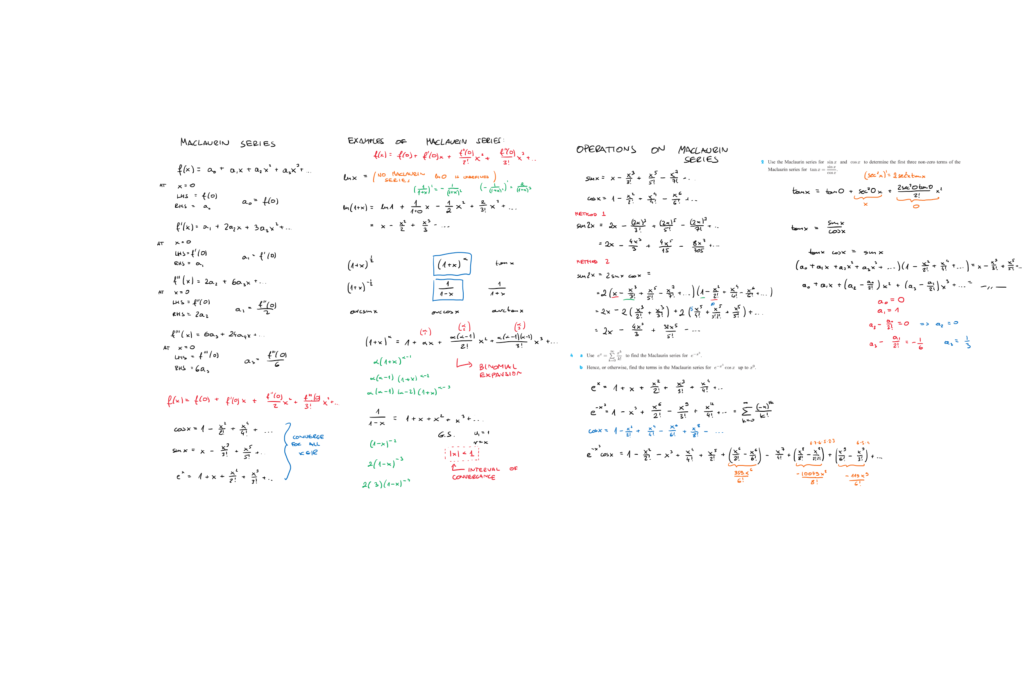 MACLAURIN SERIES
f(x) = a₀ + a₁x + a₂x² + a₃x³...
AT x=0
LHS = f(0)
RHS = a₀
a₀ = f(0)
f'(x) = a₁ + 2a₂x + 3a₃x² + ...
AT x=0
LHS = f'(0)
RHS = a₁
a₁ = f'(0)
f''(x) = 2a₂ + 6a₃x...
AT x=0
LHS = f''(0)
RHS = 2a₂
a₂ = f''(0)/2
f'''(x) = 6a₃ + 24a₄x + ...
AT x=0
LHS = f'''(0)
RHS = 6a₃
a₃ = f'''(0)/6
f(x) = f(0) + f'(0)x + f''(0)/2 x² + f'''(0)/3! x³ + ...
cosx = 1 - x²/2! + x⁴/4! + ...
sinx = x - x³/3! + x⁵/5! + ...
eˣ = 1 + x + x²/2! + x³/3! + ...
CONVERGE FOR ALL x∈R
EXAMPLES OF MACLAURIN SERIES:
f(x) = f(0) + f'(0)x + f''(0)/2! x² + f'''(0)/3! x³ + ...
lnx = (NO MACLAURIN SERIES, ln0 IS UNDEFINED)
ln(1+x) = ln1 + 1/(1+0) x - 1/2 x² + 2/3! x³ + ...
= x - x²/2 + x³/3 - ...
(1+x)^n
tanx
1/(1-x)
1/(1+x)
arcsinx arccosx arctanx
(1+x)^n = 1 + nx + n(n-1)/2! x² + n(n-1)(n-2)/3! x³ + ...
n(1+x)^(n-1)
n(n-1)(1+x)^(n-2)
n(n-1)(n-2)(1+x)^(n-3)
BINOMIAL EXPANSION
1/(1-x) = 1 + x + x² + x³ + ...
G.S. u₁=1
r=x
(1-x)⁻²
2(1-x)⁻³
|x| < 1
INTERVAL OF CONVERGENCE
OPERATIONS ON MACLAURIN SERIES
sinx = x - x³/3! + x⁵/5! - x⁷/7! + ...
cosx = 1 - x²/2! + x⁴/4! - x⁶/6! + ...
METHOD 1
sin2x = 2x - (2x)³/3! + (2x)⁵/5! - (2x)⁷/7! + ...
= 2x - 4x³/3 + 4x⁵/15 - 8x⁷/105 + ...
METHOD 2
sin2x = 2sinx cosx =
= 2(x - x³/3! + x⁵/5! - x⁷/7! + ...)(1 - x²/2! + x⁴/4! - x⁶/6! + ...)
a Use eˣ = Σ xᵏ/k! to find the Maclaurin series for e^(-x³).
b Hence, or otherwise, find the terms in the Maclaurin series for e^(-x³) cos x up to x⁶.
eˣ = 1 + x + x²/2! + x³/3! + x⁴/4! + ...
8 Use the Maclaurin series for sin x and cos x to determine the first three non-zero terms of the
Maclaurin series for tan x = sin x/cos x
(sec²x)' = 2sec²x tanx
tanx = tan0 + sec²0 x + 2sec²0 tan0/2! x²
x 0
tanx = sinx/cosx
tanx cosx = sinx
(a₀ + a₁x + a₂x² + a₃x³ + ...)(1 - x²/2! + x⁴/4! + ...) = x - x³/3! + x⁵/5!
a₀ + a₁x + (a₂ - a₀/2!)x² + (a₃ - a₁/2!)x³ ... = -,,-
a₀ = 0
a₁ = 1
a₂ - a₀/2! = 0 => a₂ = 0
a₃ - a₁/2! = -1/6 a₃ = 1/3